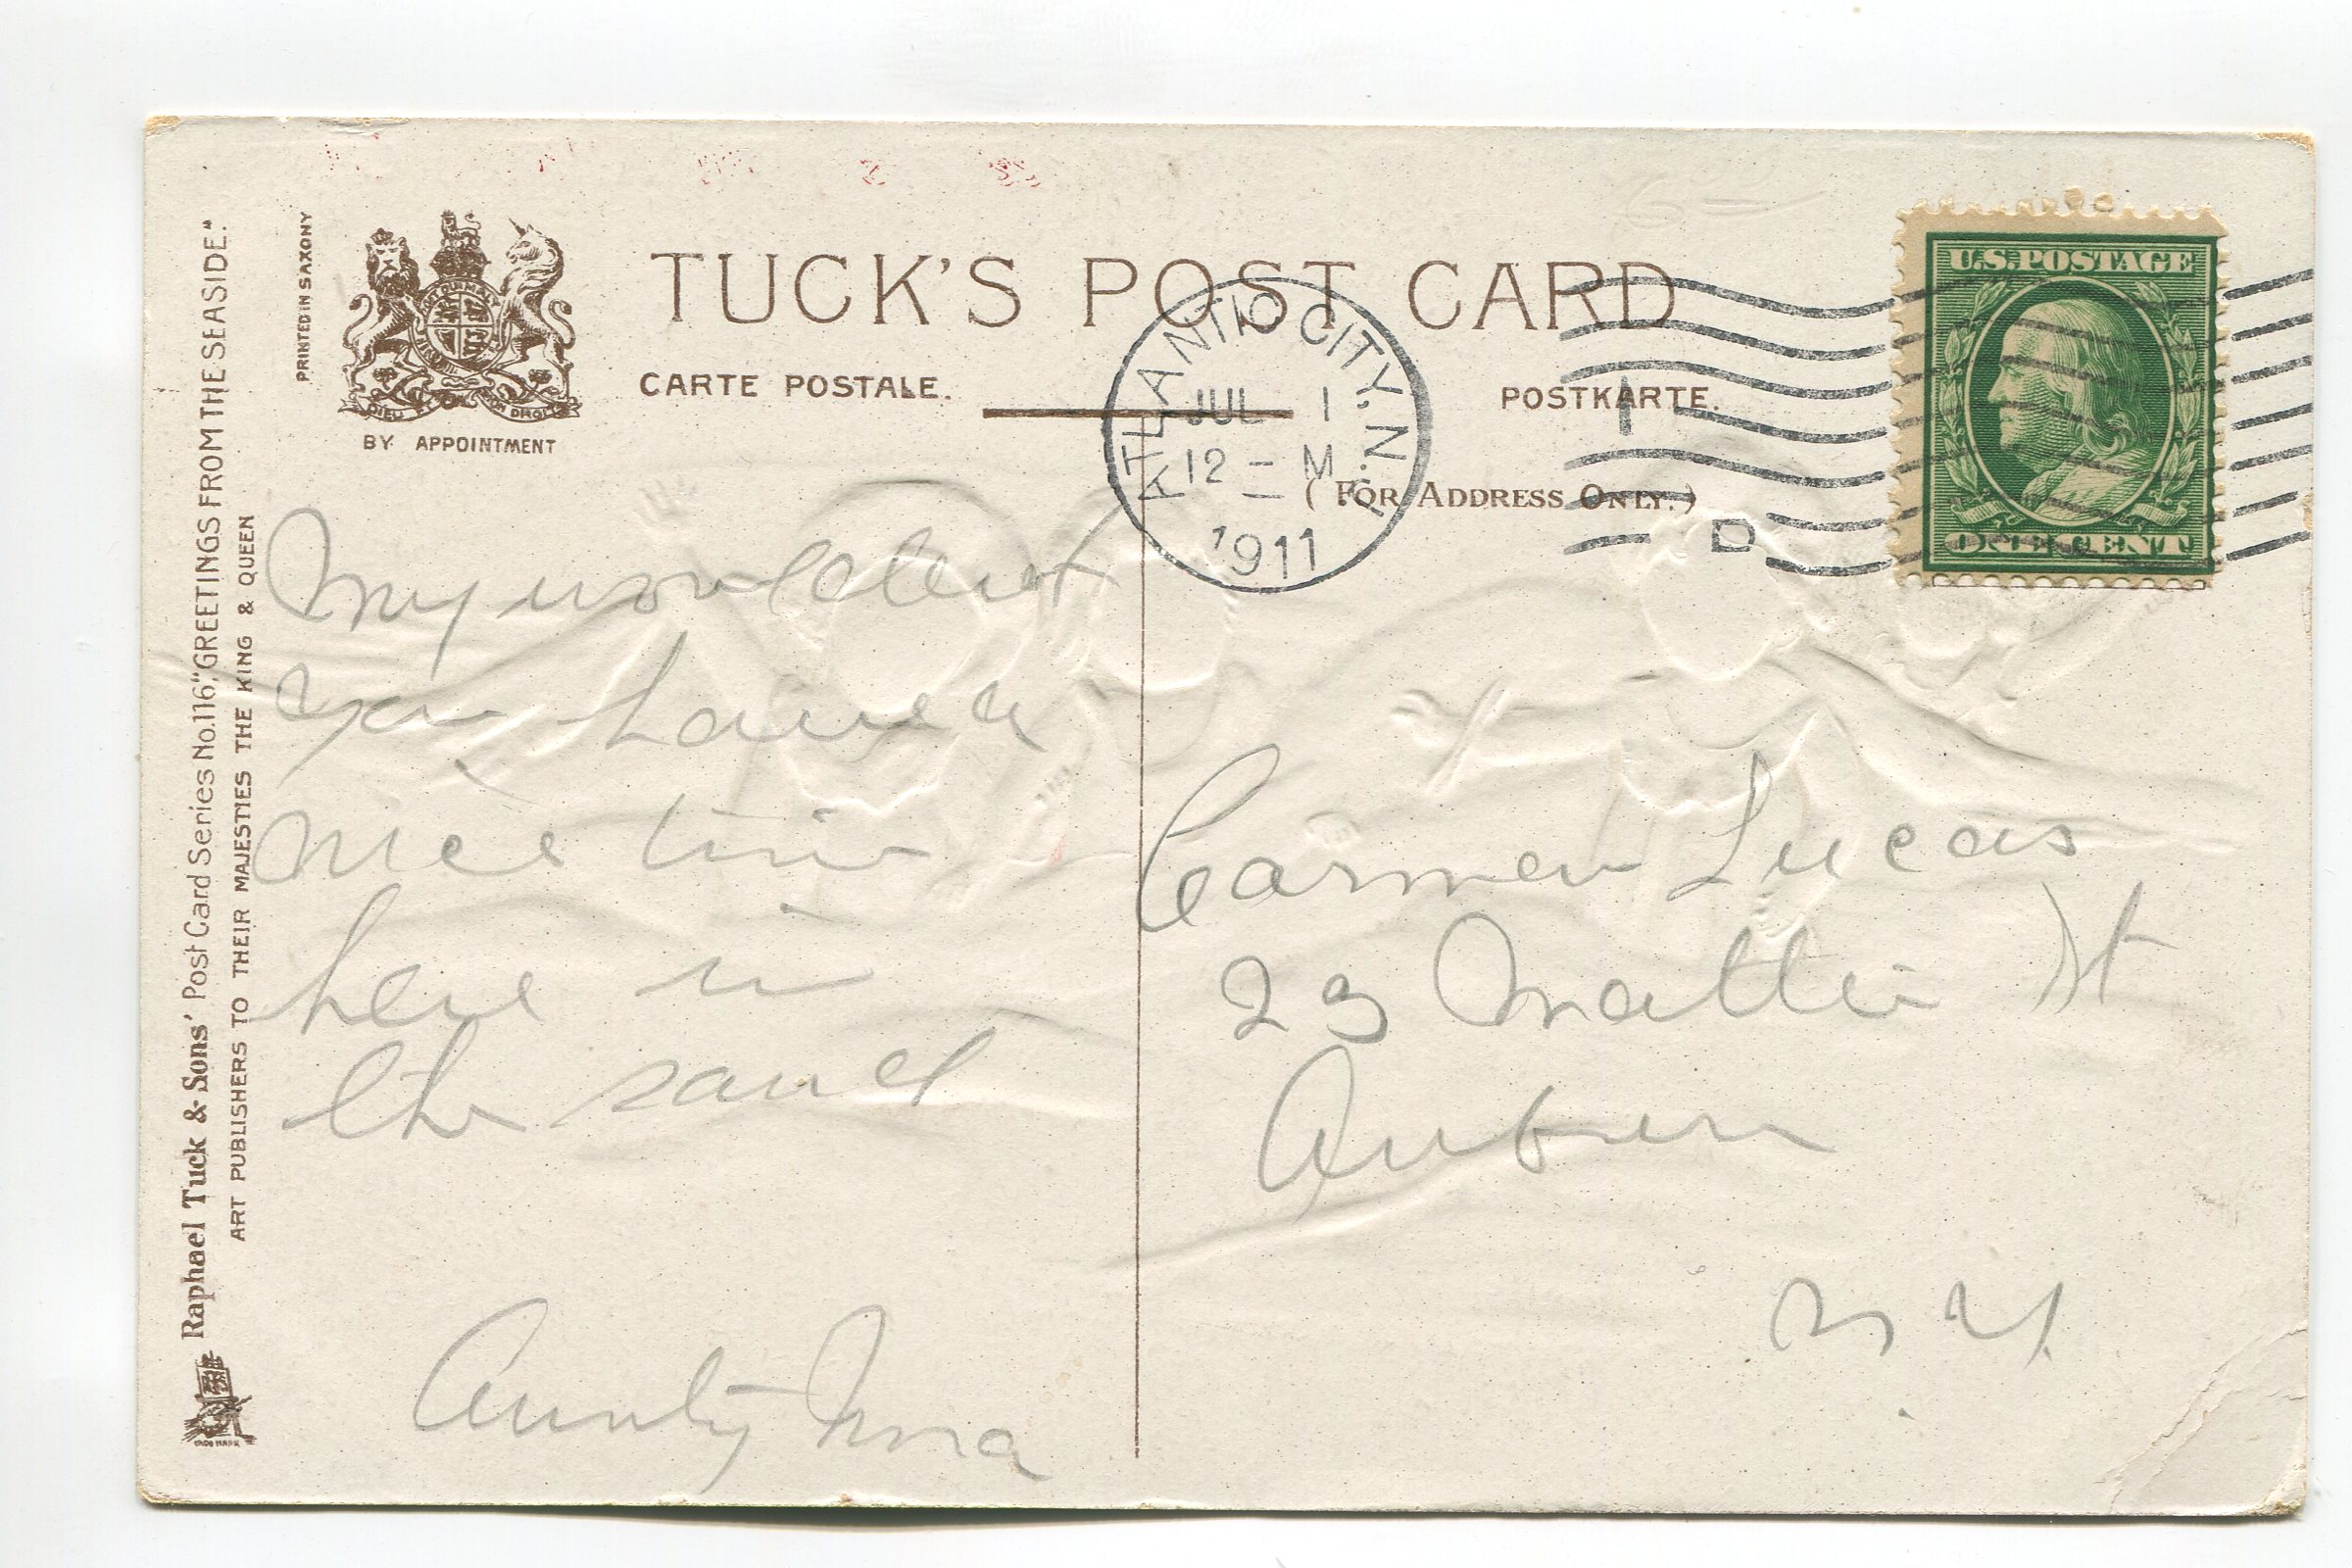 PRINTED IN SAXONY
DIEU ET MON DROIT
BY APPOINTMENT
TUCK'S POST CARD
CARTE POSTALE.
POSTKARTE.
(FOR ADDRESS ONLY.)
ATLANTIC CITY, N.J.
JUL 1
12 - M
1911
1
D
U.S. POSTAGE
ONE CENT
Raphael Tuck & Sons' Post Card Series No. 116, "GREETINGS FROM THE SEASIDE."
ART PUBLISHERS TO THEIR MAJESTIES THE KING & QUEEN
TRADE MARK
My wouldent
you have a
nice time
here in
the sand
Aunty Nora
Carmen Lucas
23 Mattie St
Auburn
N.Y.